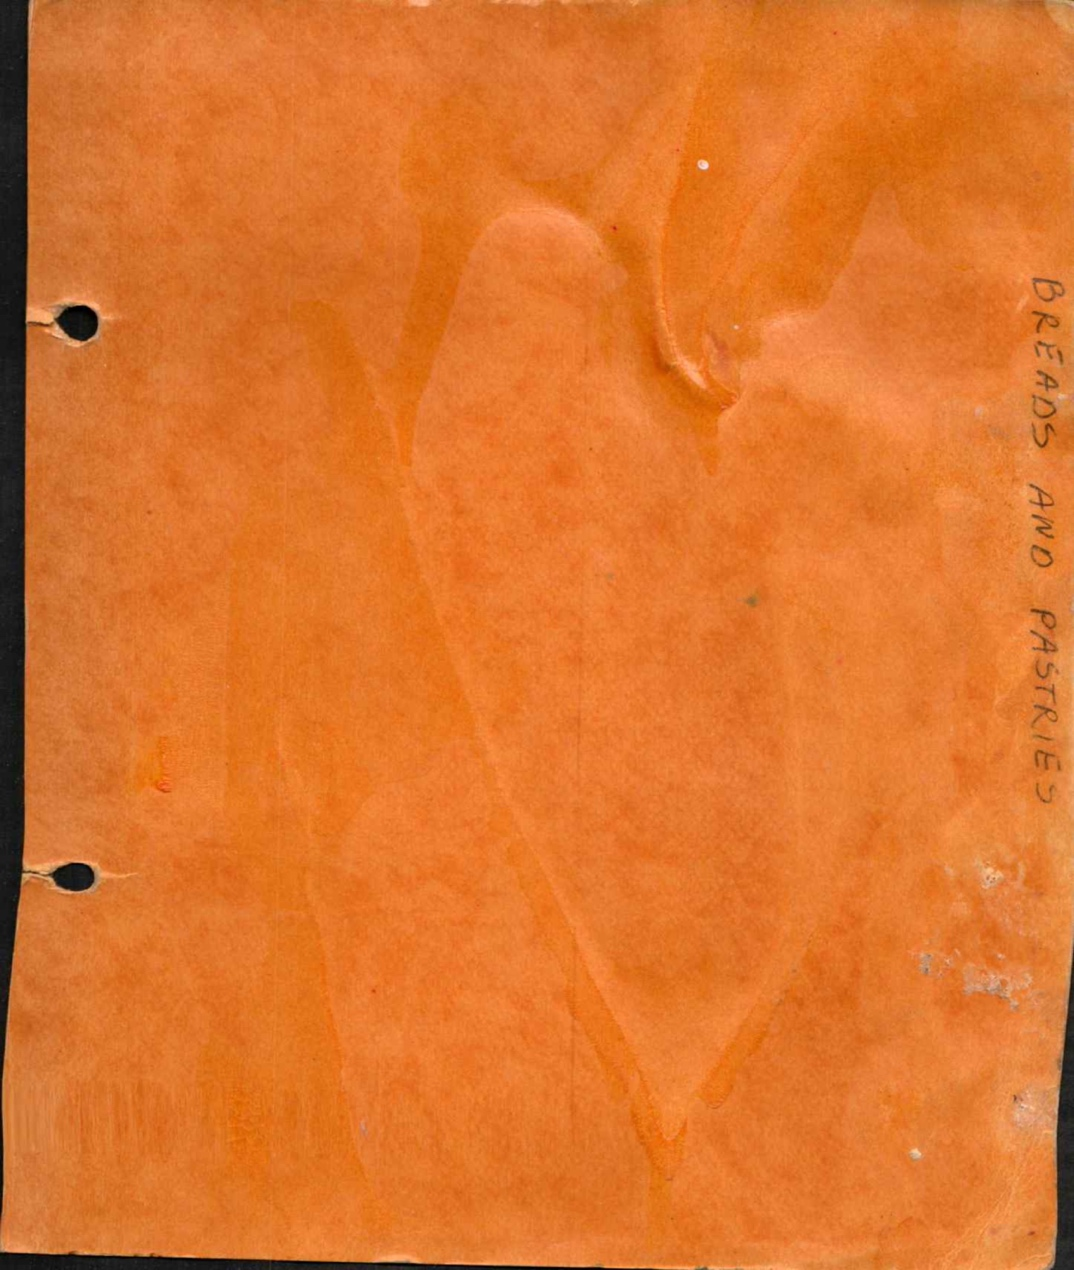 BREADS AND PASTRIES